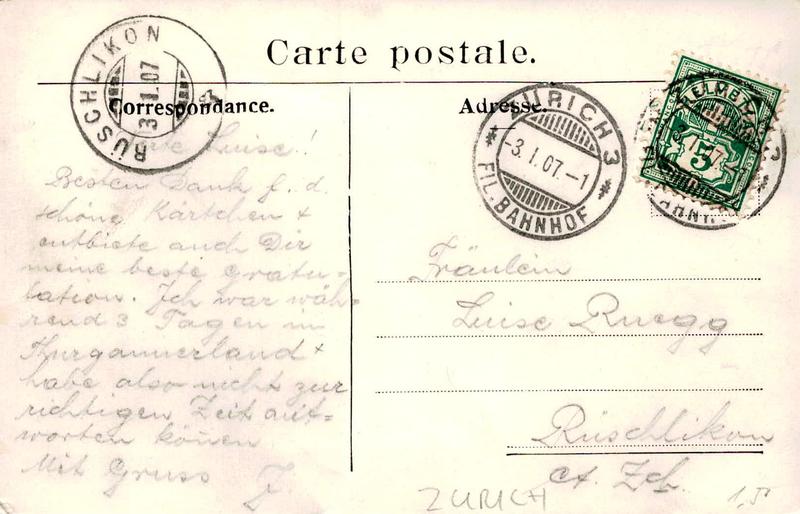 Carte postale.
Correspondance.
Adresse.
RÜSCHLIKON
3.I.07
ZÜRICH 3
-3.I.07.-1
FIL. BAHNHOF
5
Luise!
Besten Dank f. d.
schöne Kärtchen +
entbiete auch Dir
meine beste Gratu=
lation. Ich war wäh=
rend 3 Tagen in
+
habe also nicht zur
richtigen Zeit ant=
worten können
Mit Gruss J.
Fräulein
Luise Ruegg
Rüschlikon
Ct. Zch.
ZURICH